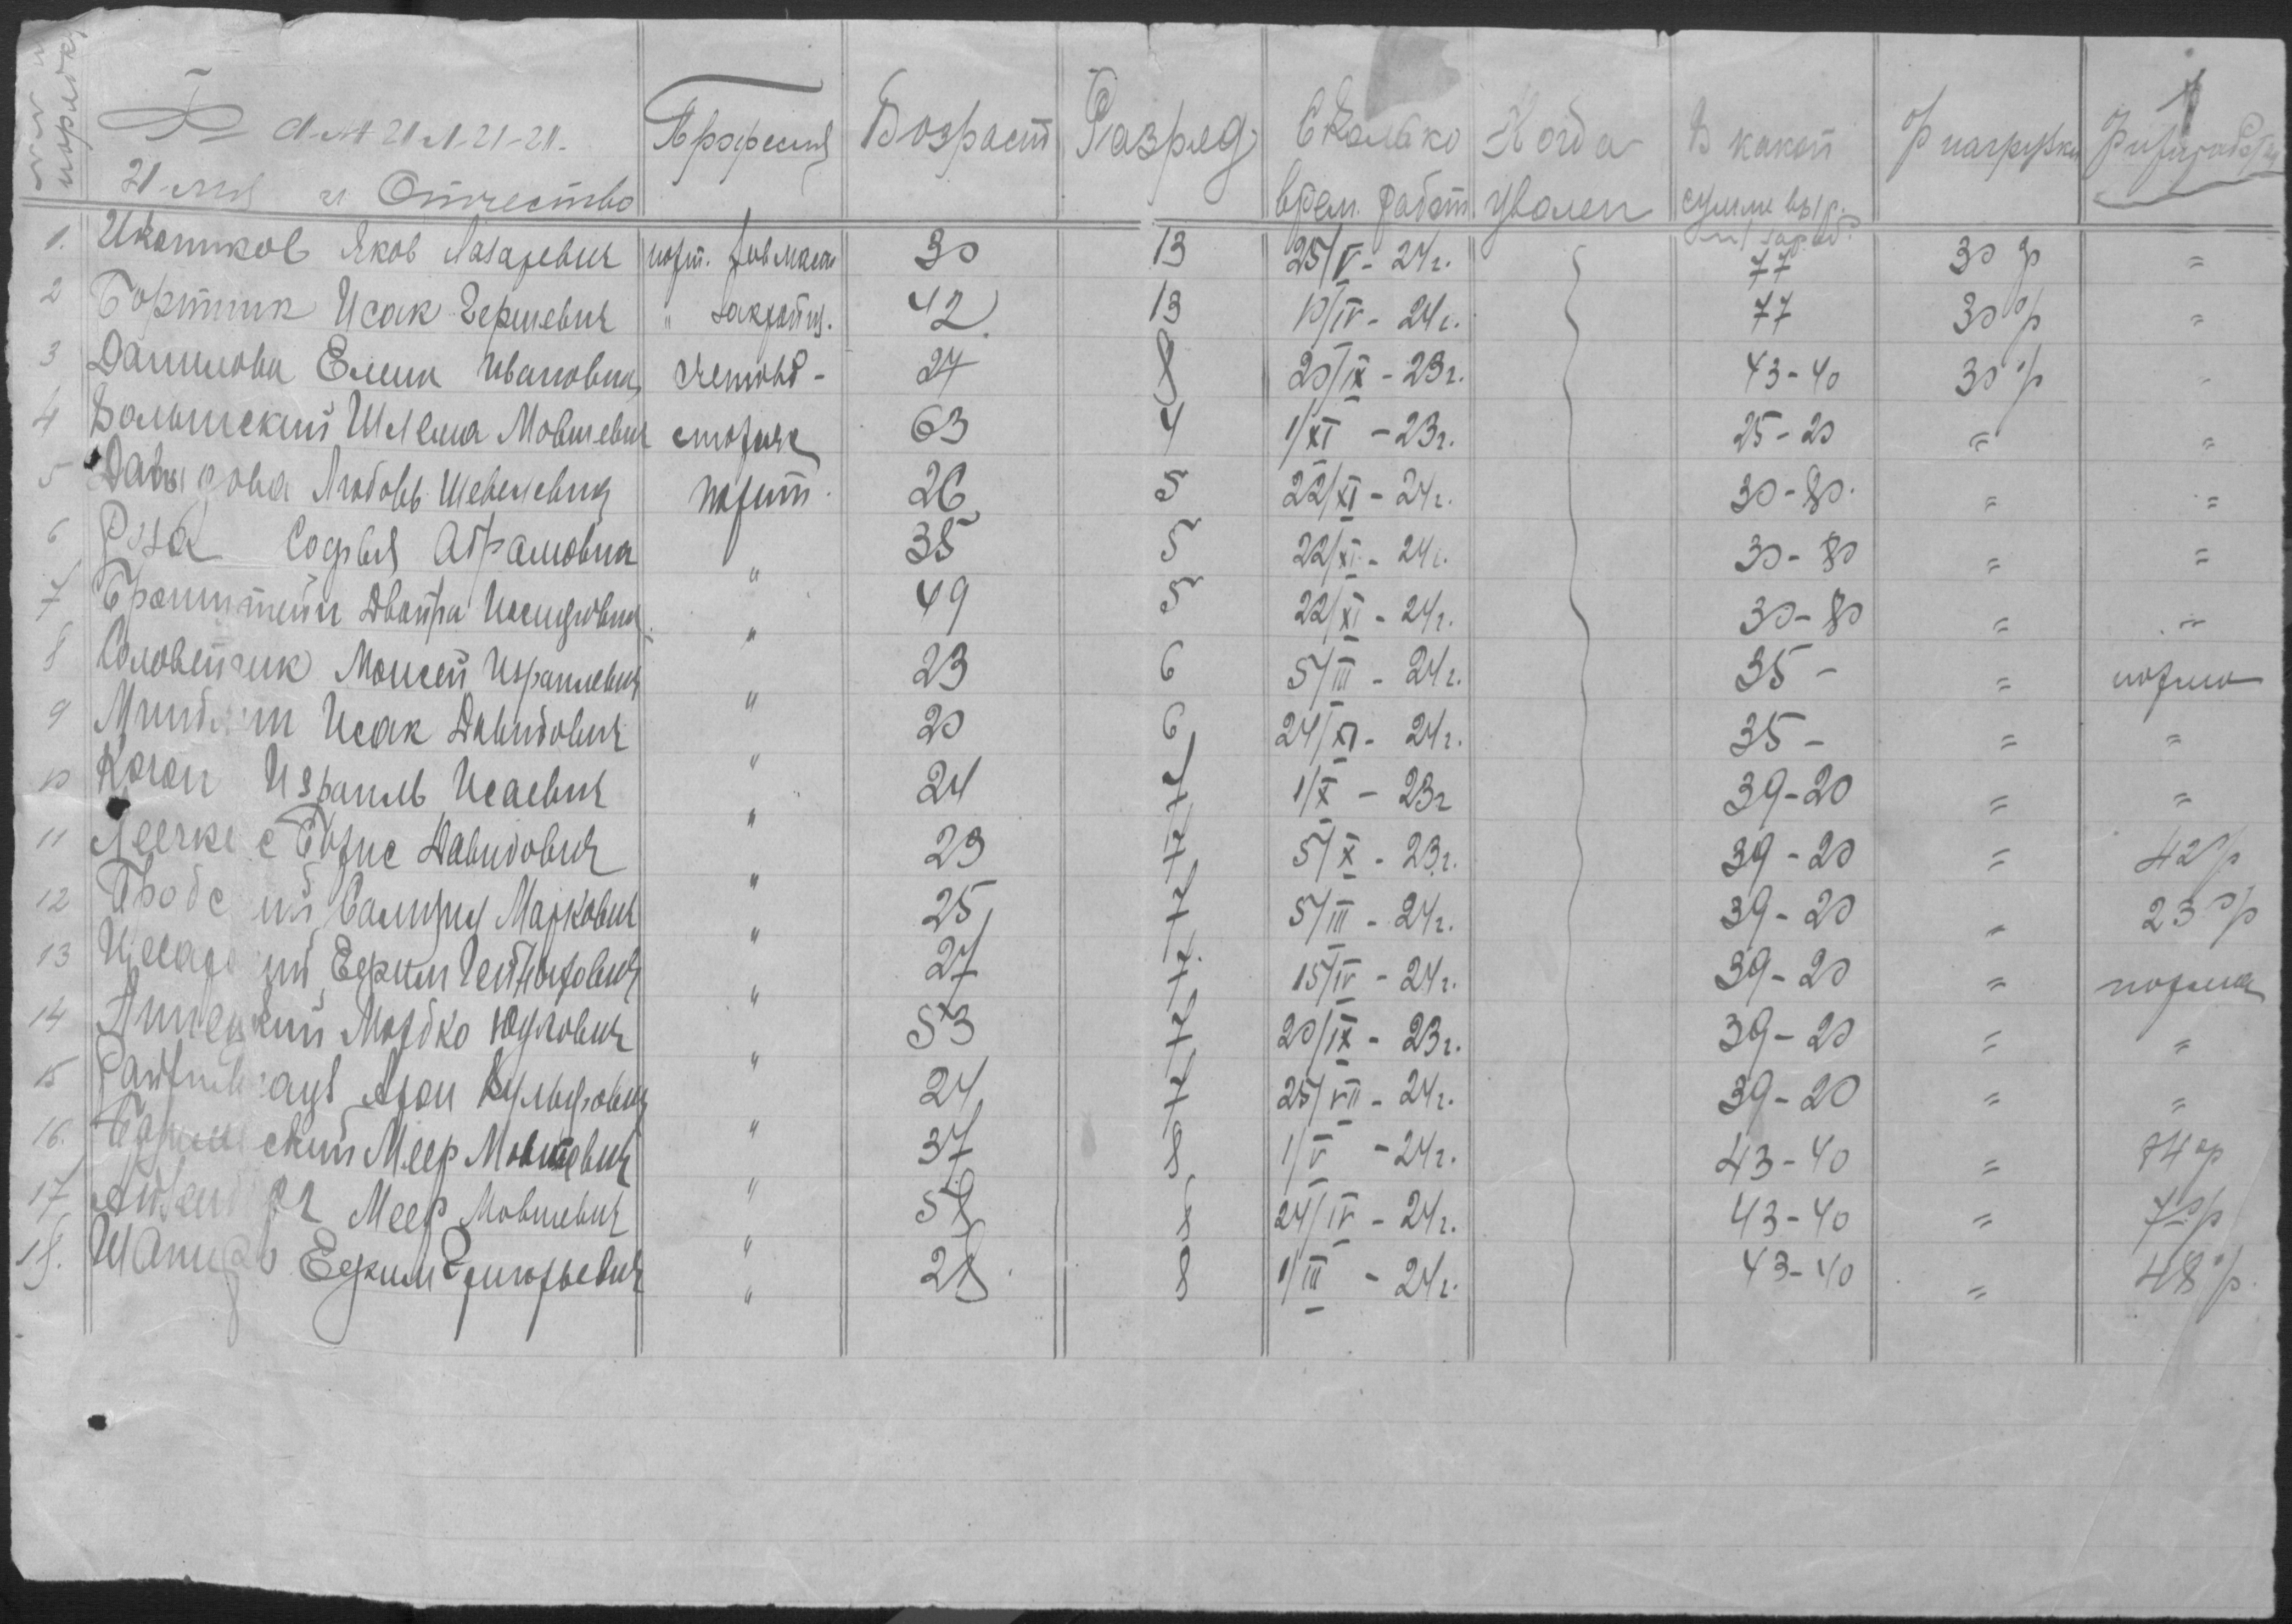 №№ по порядку Фамилия Имя и Отчество Професия Возраст Разряд Сколько врем. работ Когда уволен В какой сумме выр. зараб. % нагрузки
1. Иконников Яков Лазаревич порт. 30 13 25/V - 24г. 77 30% =
2 Бортник Исак Гершевич " закройщ. 42 13 10/IV - 24г. 77 30% =
3 Данилова Елена Ивановна счетовод - 27 8 20/IX - 23г. 43-40 30% =
4 Волынский Шлема Мовшевич сторож 63 4 1/XI - 23г. 25-20 = =
5 Давыдова Любовь Шевелевна порт. 26 5 22/XI - 24г. 30-80. = =
6 Роза Софья Абрамовна " 35 5 22/XI - 24г. 30-80 = =
7 Бронштейн Двойра Иосифовна " 49 5 22/XI - 24г. 30-80 = =
8 Соловейчик Моисей Израилевич " 23 6 5/III - 24г. 35- = норма
9 Исак Давидович " 20 6 24/XI - 24г. 35- = =
10 Коган Израиль Исаевич " 24 7 1/X - 23г 39-20 = =
11 Борис Давидович " 23 7 5/X - 23г. 39-20 = 42%
12 Маркович " 25 7 5/III - 24г. 39-20 = 23%
13 Ефким " 27 7 15/IV - 24г. 39-20 = норма
14 Мордко Юдлович " 53 7 20/IX - 23г. 39-20 = =
15 Арон " 24 7 25/VII - 24г. 39-20 = =
16. Меер Мовшевич " 37 8 1/V - 24г. 43-40 = 74%
17 Меер Мовшевич " 59 8 24/IV - 24г. 43-40 = 70%
18. Шапиро Ефким Григорьевич " 28 8 1/III - 24г. 43-40 = 48%